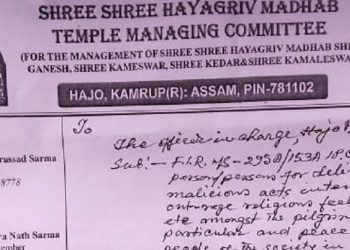 SHREE SHREE HAYAGRIV MADHAB
TEMPLE MANAGING COMMITTEE
(FOR THE MANAGEMENT OF SHREE SHREE HAYAGRIV MADHAB SH
GANESH, SHREE KAMESWAR, SHREE KEDAR & SHREE KAMALESWA
HAJO, KAMRUP(R): ASSAM, PIN-781102
To
The officer in charge, Hajo P
Sub:- F.I.R. U/S-295A/153A IPC
person/persons for deli
malicious acts inten
outrage religious feel
etc amongst the pilgrim
particular and peace
people of the society in
rassad Sarma
8778
ra Nath Sarma